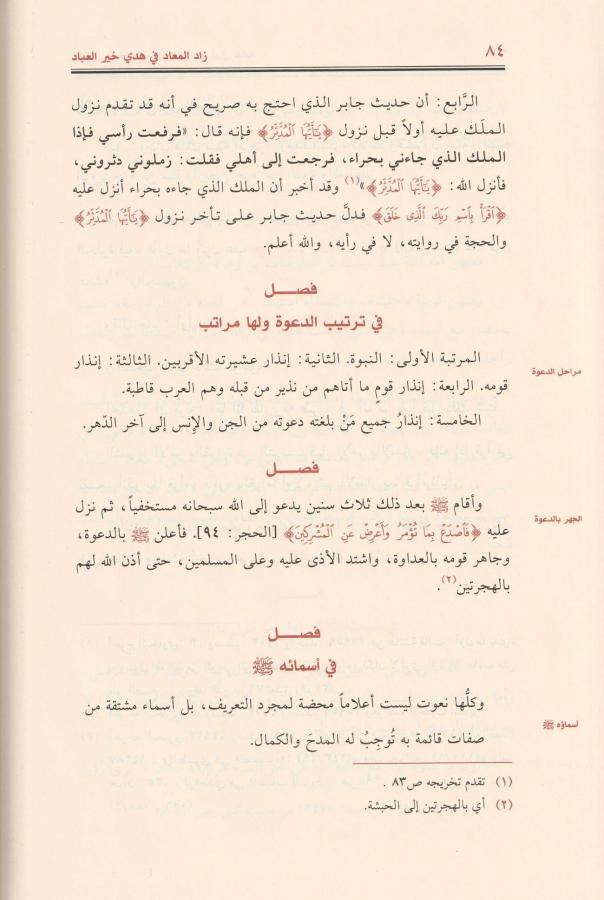 ٨٤
زاد المعاد في هدي خير العباد
الرَّابع: أن حديث جابر الذي احتج به صريح في أنه قد تقدم نزول
الملَك عليه أولاً قبل نزول ﴿يَٰٓأَيُّهَا ٱلْمُدَّثِّرُ﴾ فإنه قال: «فرفعت رأسي فإذا
الملك الذي جاءني بحراء، فرجعت إلى أهلي فقلت: زملوني دثروني،
فأنزل الله: ﴿يَٰٓأَيُّهَا ٱلْمُدَّثِّرُ﴾»(١) وقد أخبر أن الملك الذي جاءه بحراء أنزل عليه
﴿ٱقْرَأْ بِٱسْمِ رَبِّكَ ٱلَّذِى خَلَقَ﴾ فدلَّ حديث جابر على تأخر نزول ﴿يَٰٓأَيُّهَا ٱلْمُدَّثِّرُ﴾
والحجة في روايته، لا في رأيه، والله أعلم.
فصل
في ترتيب الدعوة ولها مراتب
مراحل الدعوة
المرتبة الأولى: النبوة. الثانية: إنذار عشيرته الأقربين. الثالثة: إنذار
قومه. الرابعة: إنذار قومٍ ما أتاهم من نذير من قبله وهم العرب قاطبة.
الخامسة: إنذارُ جميع مَنْ بلغته دعوته من الجن والإنس إلى آخر الدّهر.
فصل
الجهر بالدعوة
وأقام ﷺ بعد ذلك ثلاث سنين يدعو إلى الله سبحانه مستخفياً، ثم نزل
عليه ﴿فَٱصْدَعْ بِمَا تُؤْمَرُ وَأَعْرِضْ عَنِ ٱلْمُشْرِكِينَ﴾ [الحجر: ٩٤]. فأعلن ﷺ بالدعوة،
وجاهر قومه بالعداوة، واشتد الأذى عليه وعلى المسلمين، حتى أذن الله لهم
بالهجرتين(٢).
فصل
في أسمائه ﷺ
أسماؤه ﷺ
وكلُّها نعوت ليست أعلاماً محضة لمجرد التعريف، بل أسماء مشتقة من
صفات قائمة به تُوجِبُ له المدحَ والكمال.
(١) تقدم تخريجه ص٨٣ .
(٢) أي بالهجرتين إلى الحبشة.